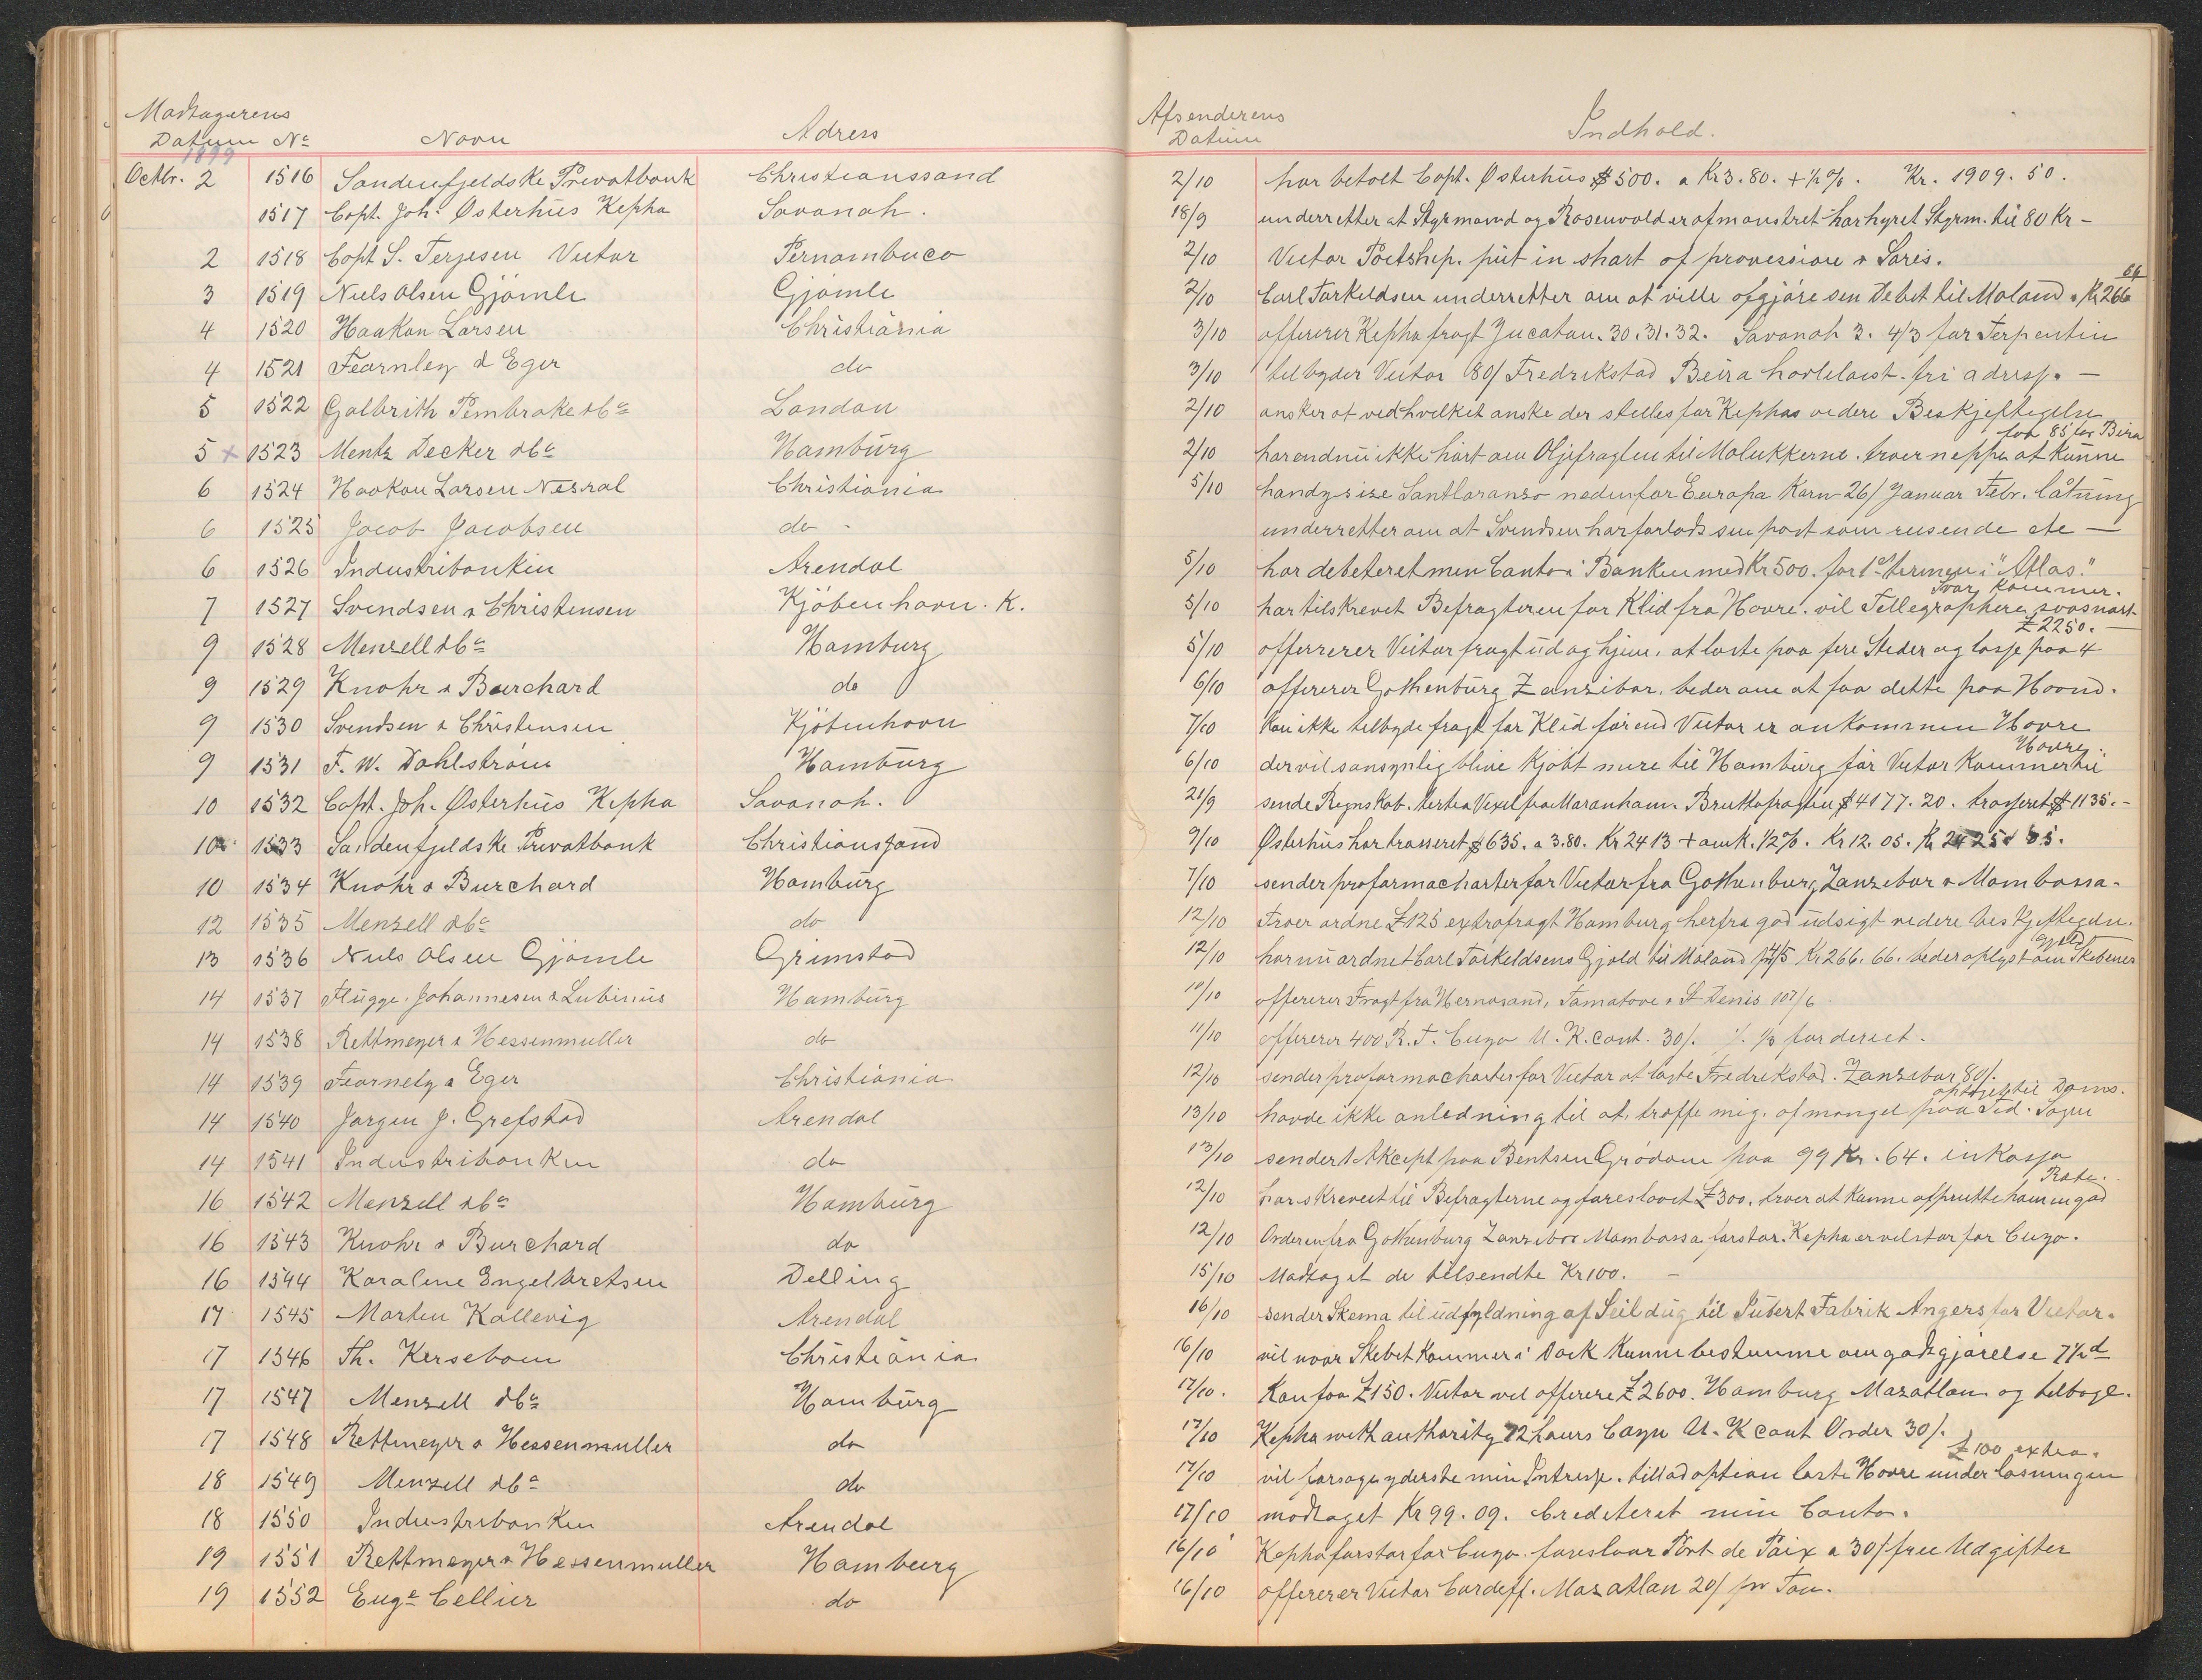 Modtagerens
Datum No Navn Adress
1899
Octbr. 2 1516 Søndenfjeldske Privatbank Christianssand
1517 Capt. Joh. Østerhus Kepha Savanah.
2 1518 Capt S. Terjesen Victor Pernambuco
3 1519 Niels Olsen Gjömle Gjömle
4 1520 Haakon Larsen Christiania
4 1521 Fearnley & Eger do
5 1522 Galbrith Pembroke &Co London
5 x 1523 Mentz Decker &Co Hamburg
6 1524 Haakon Larsen Nesral Christiania
6 1525 Jacob Jacobsen do -
6 1526 Industribanken Arendal
7 1527 Svendsen & Christensen Kjöbenhavn. K.
9 1528 Menzell &Co Hamburg
9 1529 Knohr & Burchard do
9 1530 Svendsen & Christensen Kjöbenhavn
9 1531 F. W. Dahlström Hamburg
10 1532 Capt. Joh. Østerhus Kepha Savanah.
10 1533 Søndenfjeldske Privatbank Christianssand
10 1534 Knohr & Burchard Hamburg
12 1535 Menzell &Co do
13 1536 Niels Olsen Gjömle Grimstad
14 1537 Flügge. Johannesen & Lubinus Hamburg
14 1538 Rettmeyer & Hessenmuller do
14 1539 Fearnely & Eger Christiania
14 1540 Jørgen J. Grefstad Arendal
14 1541 Industribanken do
16 1542 Menzell &Co Hamburg
16 1543 Knohr & Burchard do
16 1544 Karoline Engelbretsen Delling
17 1545 Morten Kallevig Arendal
17 1546 Th. Kersebom Christiania
17 1547 Menzell &Co Hamburg
17 1548 Rettmeyer & Hessenmuller do
18 1549 Menzell &Co do
18 1550 Industribanken Arendal
19 1551 Rettmeyer & Hessenmuller Hamburg
19 1552 Euge Cellier do
Afsenderens
Datum Indhold.
2/10 har betalt Capt. Østerhus $ 500. a Kr 3.80. + ½ %. Kr. 1909. 50.
18/9 underretter at Styrmand og Rosenvold er afmønstret har hyret Styrm. til 80 Kr -
2/10 Victor Poetship. put in short of provession & Saris.
2/10 Carl Torkeldsen underretter om at ville afgjøre sen Debet til Moland. Kr 266 66
3/10 offererer Kepha fragt Jucatan. 30. 31. 32. Savanah 3. 4/3 for Terpentin
3/10 tilbyder Victor 80/ Fredrikstad Beira fri adress. -
2/10 ønsker at ved hvilket ønske der stilles for Kephas videre Beskjeftigelse
2/10 har endnu ikke hört om Oljefragten til Molukkerne. troer neppe at kunne faa 85 for Bira
5/10 handysise nedenfor Europa Korn 26/ Januar Febr. låtning
underretter om at Svendsen har forlads sin post som reisende etc —
5/10 har debeteret min Conto i Banken med Kr 500. for 1ste termin i "Atlas."
5/10 har tilskrevet Befragteren for Klid fra Havre. vil Tellegraphere saasnart Svar kommer.
5/10 offererer Victor fragt ud og hjem, at laste paa fire Steder og losse paa 4 £ 2250. -
6/10 offererer Gothenburg Zanzibar. beder om at faa dette paa Haand.
7/10 kan ikke tilbyde fragt for Klid förend Victor er ankommen Havre
6/10 der vil sansynlig blive Kjöbt mere til Hamburg för Victor kommer til Havre.
21/9 sende Regnskab. tertia Vexel fra Maranham. Bruttofragten $ 4177. 20. trasseret $ 1135. -
9/10 Østerhus har trasseret $ 635. a 3.80. Kr 2413 + omk. ½ %. Kr 12. 05. Kr 2425 05.
7/10 sender proformacharter for Victor fra Gothenburg Zanzebar & Mombassa.
12/10 Troer ordne £ 125 extrafragt Hamburg herfra god udsigt videre beskjeftigelse.
12/10 har nu ordnet Carl Torkeldsens Gjæld til Moland Kr 266. 66. beder oplyst om Skibenes Gjeld
10/10 offererer Fragt fra Hernosand, Tamatave & St Denis 107/6.
11/10 offererer 400 R. T. Cuyo U. K. cont. 30/. ⅓ for derect.
12/10 sender proformacharter for Victor at laste Fredrekstad. Zanzebar 80/.
13/10 havde ikke anledning til at træffe mig. af mangel paa Tid. Sagen opsættes til Doms.
13/10 sender 1 Akcept paa Bentsen Grödom paa 99 Kr. 64. inkasso
12/10 har skrevet til Befragterne og foreslaaet £ 300. troer at kunne afprutte ham en god Rabat.
12/10 Orderen fra Gothenburg Zanzebar Mombassa forstor. Kepha er vel stor for Cuyo.
15/10 Modtaget de tilsendte Kr 100. -
16/10 sender Skema til udfyldning af Seildug til Jubert Fabrik Angers for Victor.
16/10 vil naar Skibet kommer i Dock kunne bestemme om godtgjörelse 7½ d
17/10. Kan faa £ 150. Victor vil offerere £ 2600. Hamburg Mazatlan og tilbage.
17/10 Kepha with authority 72 hours Cayn U. K cont Order 30/.
17/10 vil forsøge yderste min Intresse. tillad option laste Havre under losningen £ 100 extra.
17/10 modtaget Kr 99. 09. Crediteret min Conto.
16/10 Kepha forstor for Cuyo. foreslaar Port de Paix a 30/ free Udgifter
16/10 offererer Victor Cardeff. Mazatlan 20/ pr Ton.